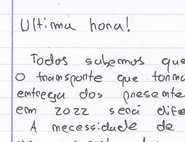 Ultima hora!
Todos sabemos que
o transporte que torna
entrega dos presente
em 2022 será dife
A necessidade de